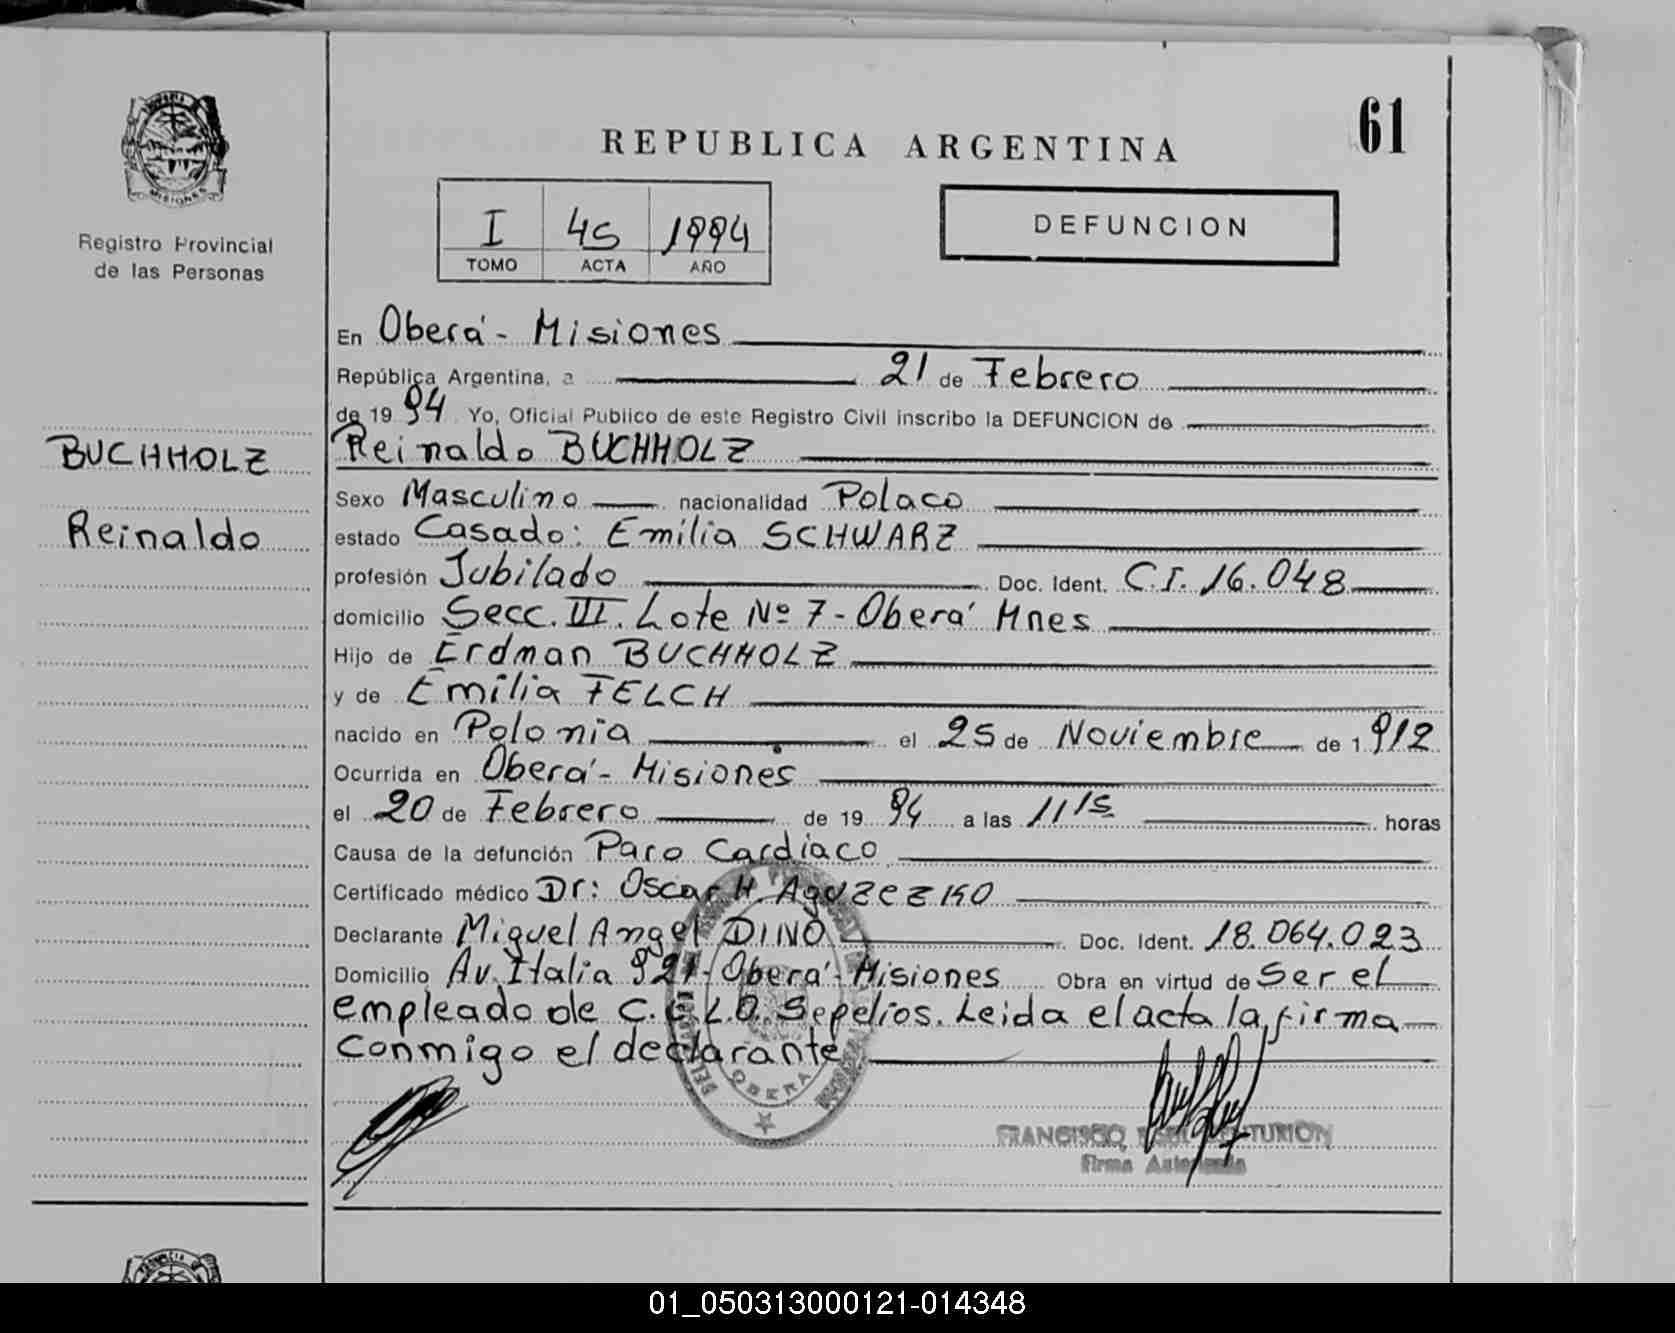 61
REPUBLICA ARGENTINA
MISIONES
Registro Provincial
de las Personas
I 45 1994
TOMO ACTA AÑO
DEFUNCION
BUCHHOLZ
Reinaldo
En Oberá - Misiones
República Argentina, a 21 de Febrero
de 19 94 Yo, Oficial Publico de este Registro Civil inscribo la DEFUNCION de
Reinaldo BUCHHOLZ
Sexo Masculino nacionalidad Polaco
estado Casado: Emilia SCHWARZ
profesión Jubilado Doc. Ident. C.I. 16.048
domicilio Secc. III. Lote Nº 7 - Oberá Mnes
Hijo de Erdman BUCHHOLZ
y de Emilia FELCH
nacido en Polonia el 25 de Noviembre de 1 912
Ocurrida en Oberá - Misiones
el 20 de Febrero de 19 94 a las 11 15 horas
Causa de la defunción Paro Cardíaco
Certificado médico Dr: Oscar H.
Declarante Miguel Angel DINO Doc. Ident. 18.064.023
Domicilio Av. Italia 921 - Oberá - Misiones Obra en virtud de Ser el
empleado de C.E.L.O. Sepelios. Leida el acta la firma
conmigo el declarante
OBERA
FRANCISCO CENTURION
Firma Autorizada
01_050313000121-014348